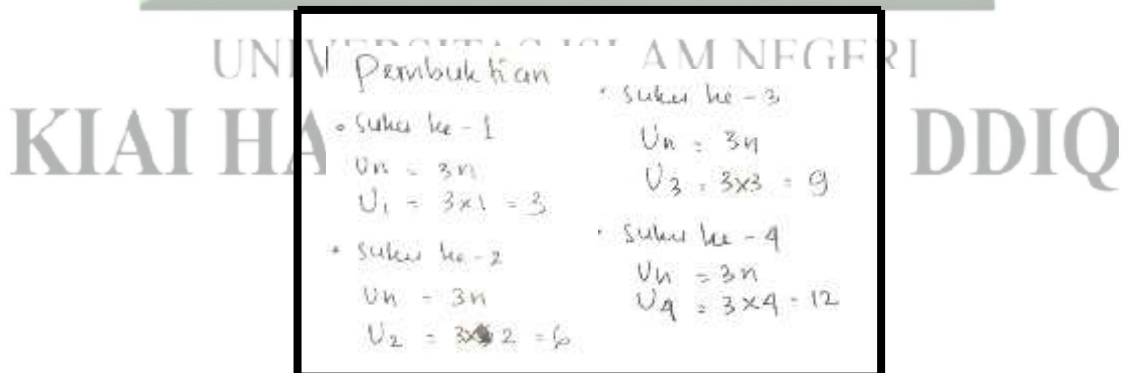 UNIVERSITAS ISLAM NEGERI
KIAI HA DDIQ
Pembuktian
• Suku ke - 1
Un = 3n
U1 = 3x1 = 3
• Suku ke - 2
Un = 3n
U2 = 3x 2 = 6
• Suku ke - 3
Un = 3n
U3 = 3x3 = 9
• Suku ke - 4
Un = 3n
U4 = 3x4 = 12